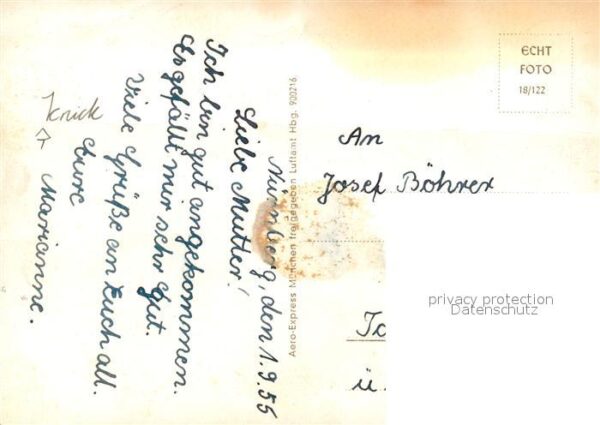 Nürnberg, den 1.9.55
Liebe Mutter!
Ich bin gut angekommen.
Es gefällt mir sehr gut.
Viele Grüße an Euch all.
Eure
Marianne.
Knick
Aero-Express München freigegeben Luftamt Hbg. 900216
ECHT
FOTO
18/122
An
Josef Böhrer
privacy protection
Datenschutz
ü.